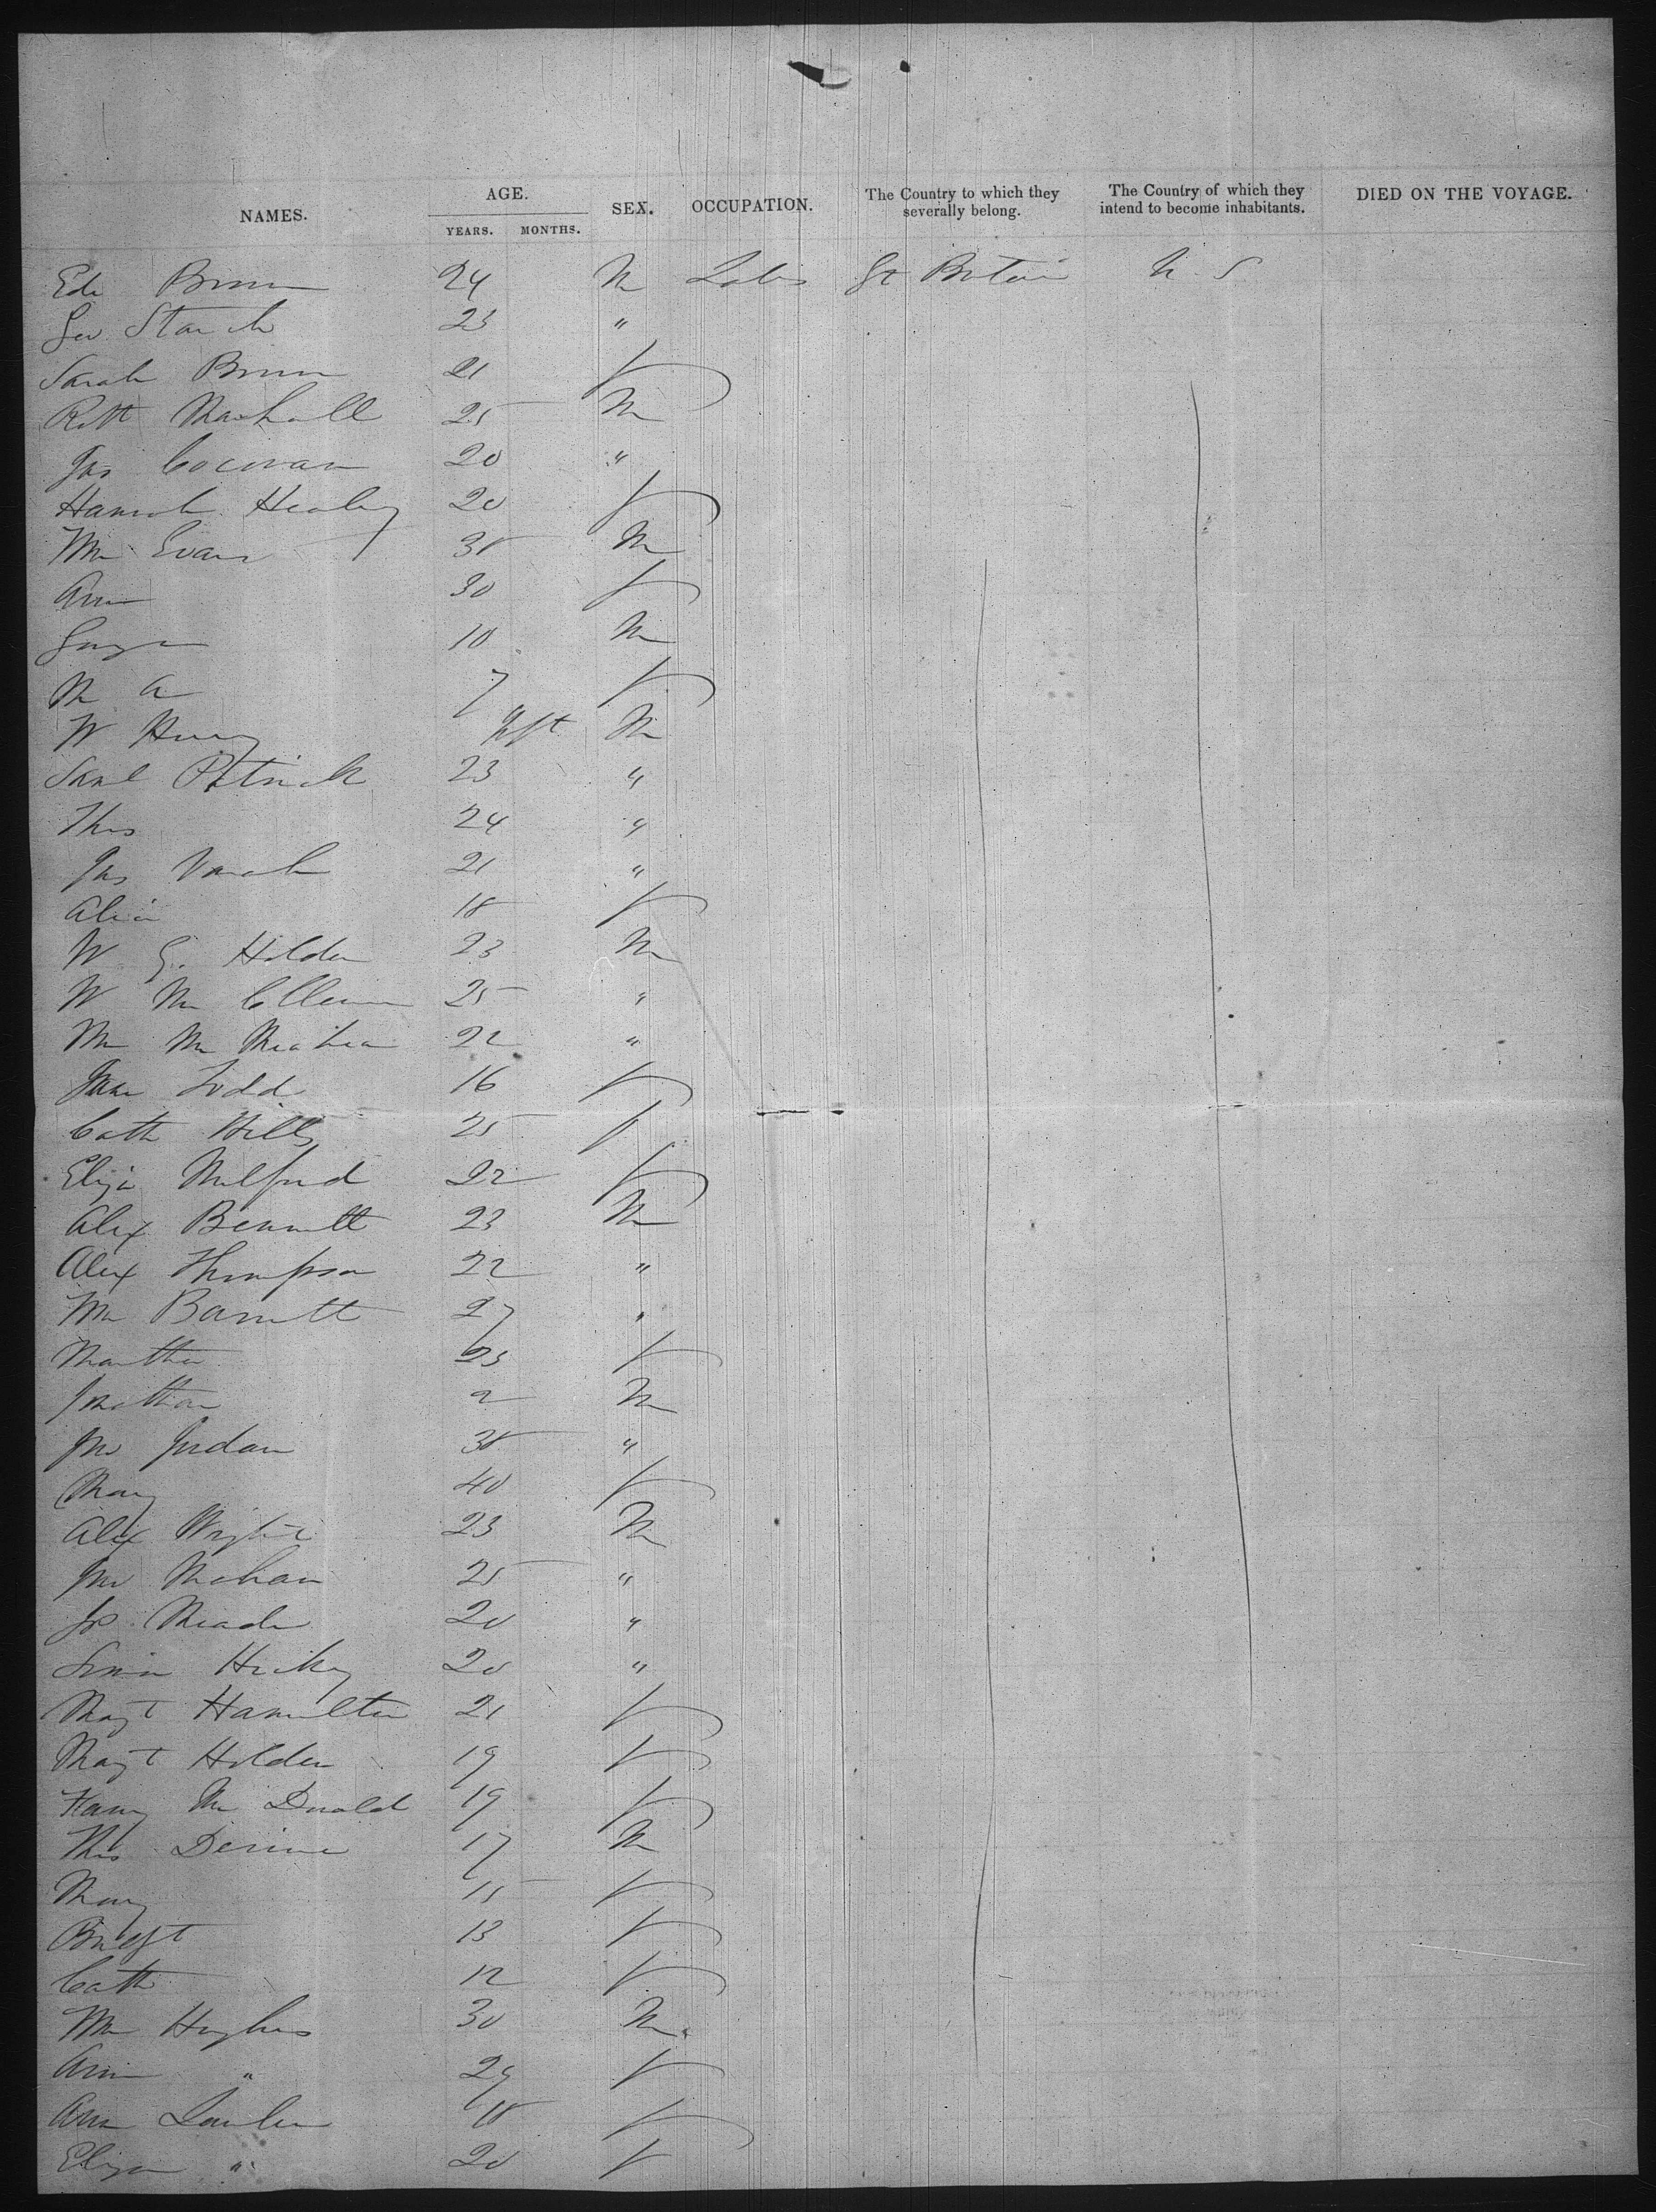 NAMES. AGE. YEARS. MONTHS. SEX. OCCUPATION. The Country to which they severally belong. The Country of which they intend to become inhabitants. DIED ON THE VOYAGE.
Ed Brown 24 M Labr Gt Britain U. S
Geo 23 "
Sarah Brown 21 F
Robt Marshall 25 M
Jas Cocoran 20 "
Hannah Healey 20 F
Wm Evans 38 M
Ann 30 F
George 10 M
M A 7 F
W Henry Inft M
Saml Patrick 23 "
Thos 24 "
Jas 21 "
Alicia 18 F
W G. Holden 23 M
W Mc 25 "
Wm Mc 22 "
Jane Todd 16 F
Cath Hills 25 F
Eliza Milford 22 F
Alex Bennett 23 M
Alex Thompson 22 "
Wm Barnett 27 "
Martha 23 F
Jonathan 2 M
Jno Jordan 38 "
Mary 40 F
Alex Wright 23 M
Jno Mahan 25 "
Jos Meade 20 "
Hickey 20 "
Magt Hamilton 21 F
Magt Holden 19 F
Fanny Mc Donald 19 F
Thos Devine 17 M
Mary 15 F
Bridgt 13 F
Cath 12 F
Wm Hughes 30 M
Ann " 29 F
Ann Lawler 18 F
Eliza " 20 F